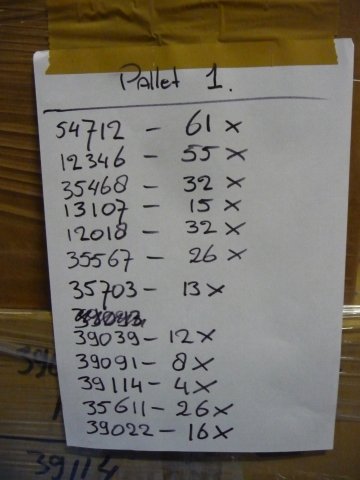 Pallet 1.
54712 - 61 x
12346 - 55 x
35468 - 32 x
13107 - 15 x
12018 - 32 x
35567 - 26 x
35703 - 13 x
39039 - 12 x
39091 - 8 x
39114 - 4 x
35611 - 26 x
39022 - 16 x
39114